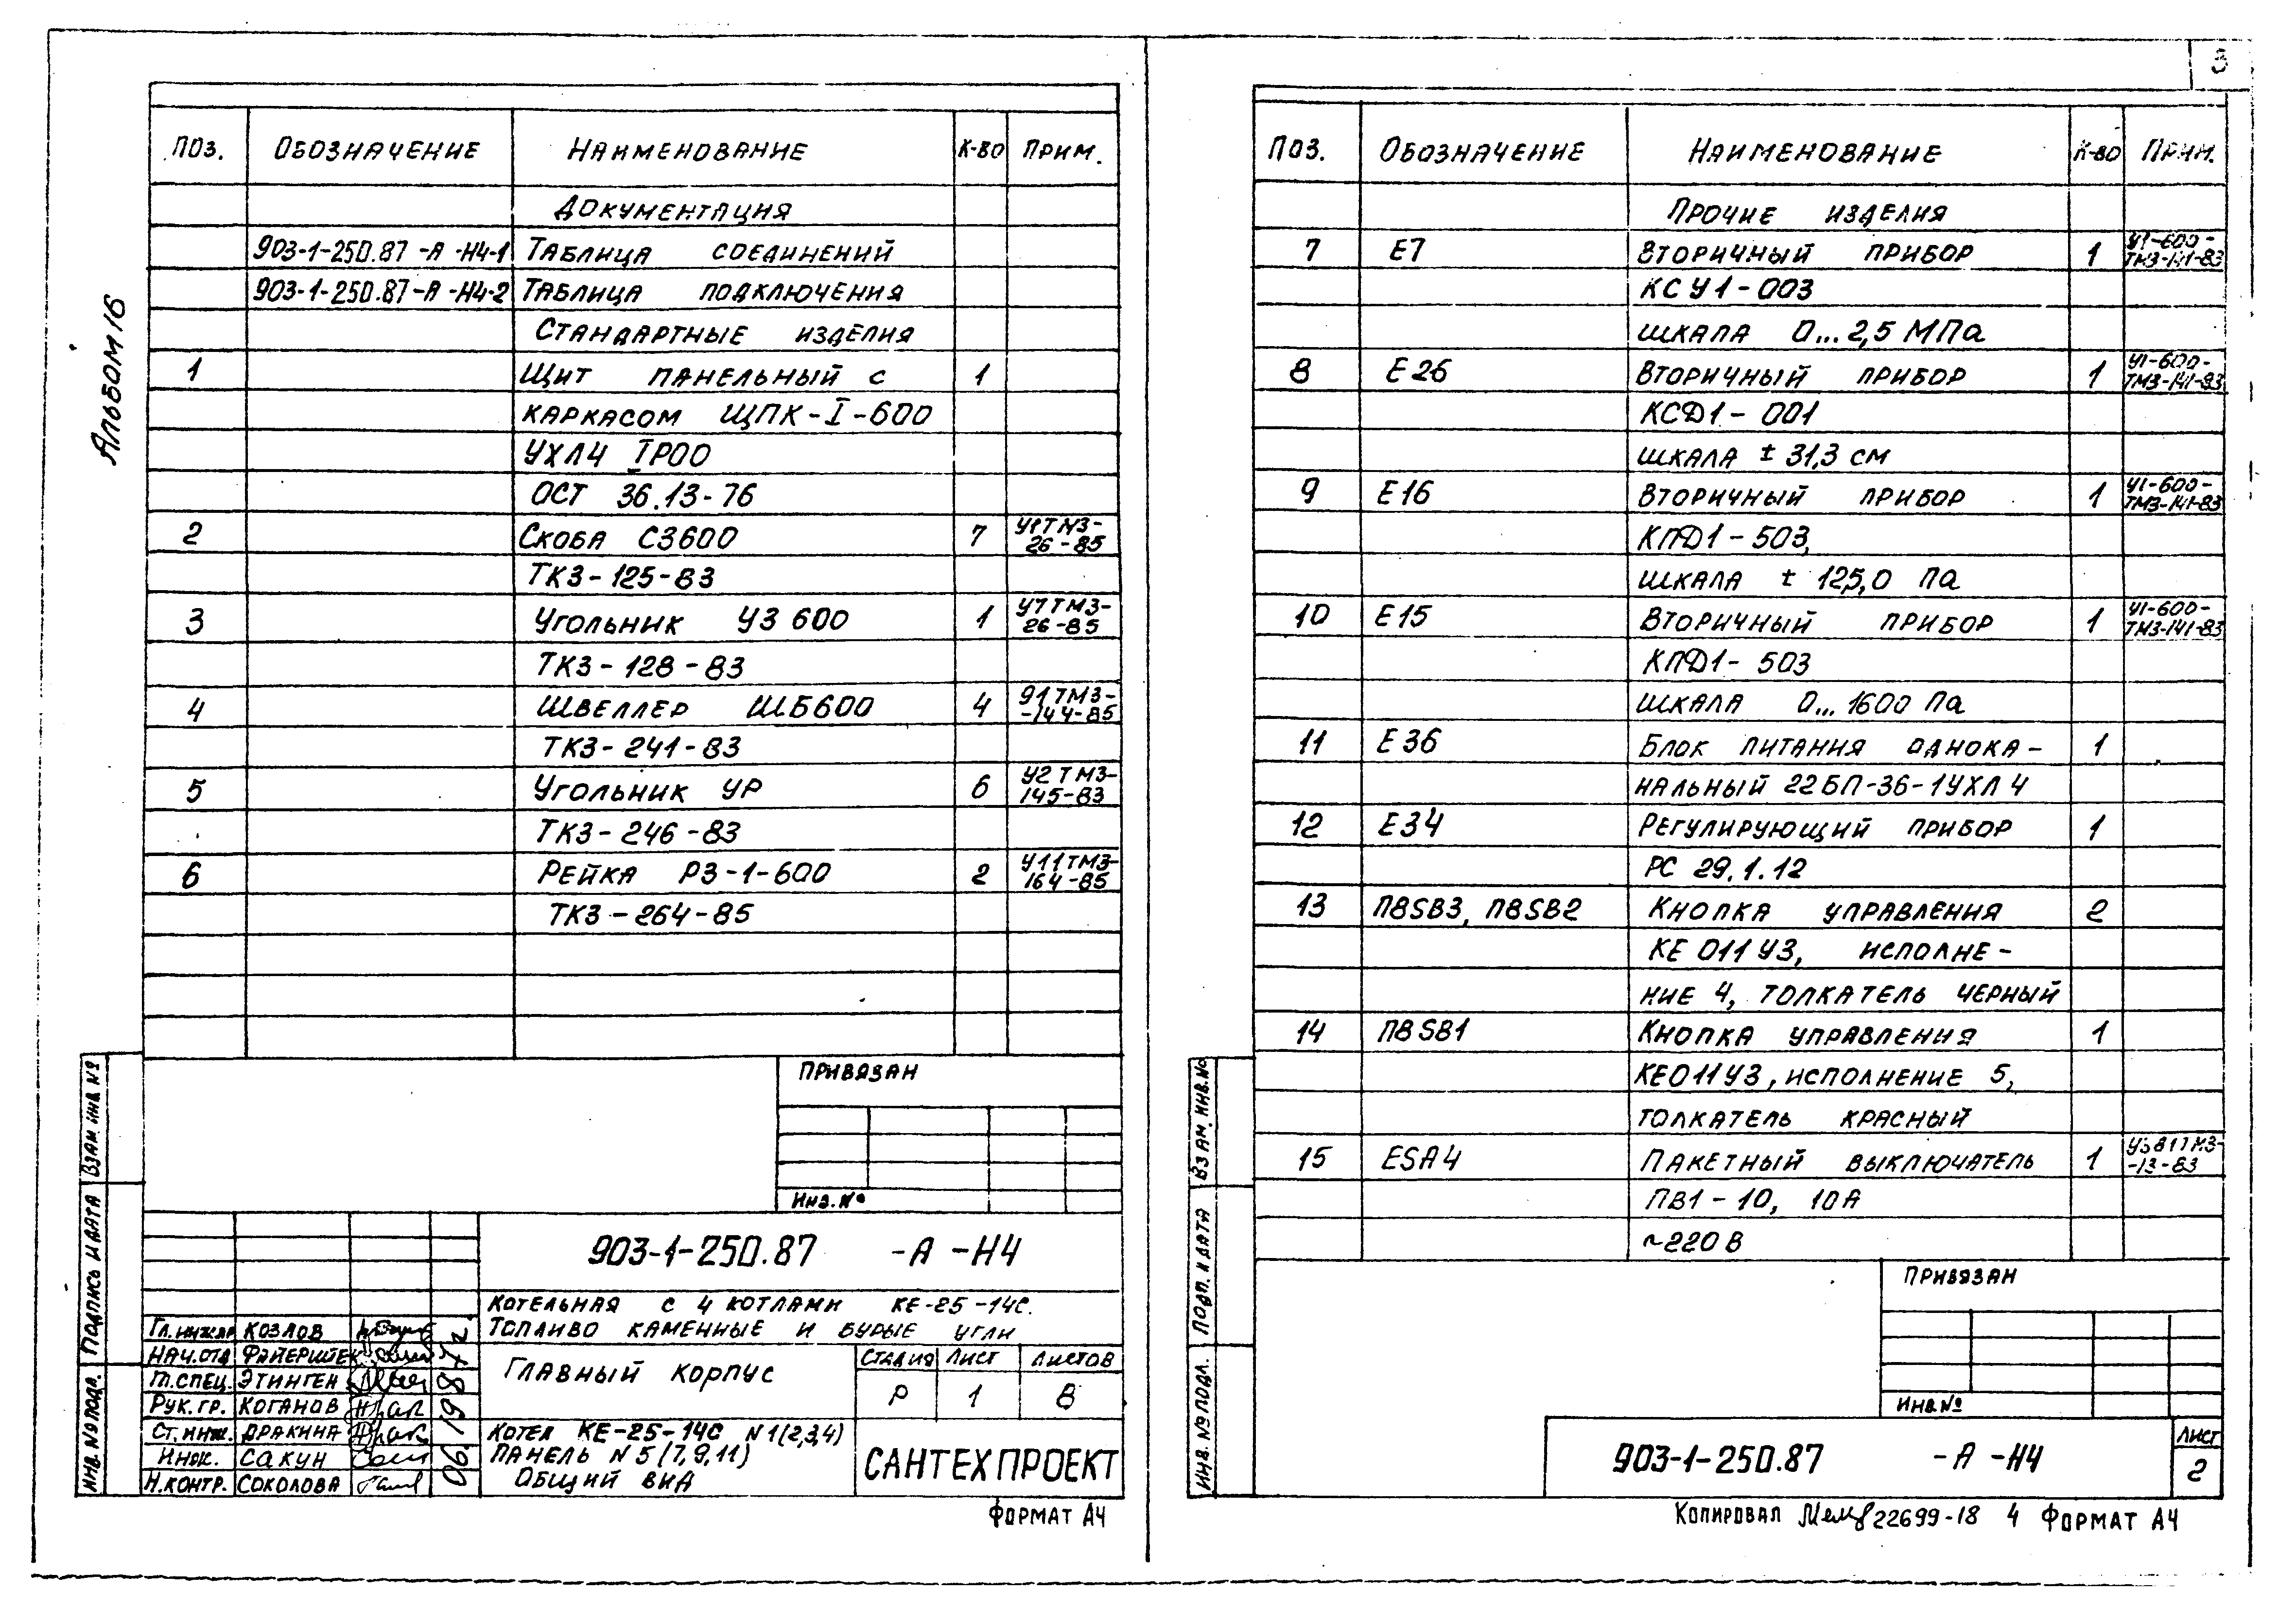 3
Альбом 16
Поз. Обозначение Наименование К-во Прим.
Документация
903-1-250.87 -А -Н4-1 Таблица соединений
903-1-250.87 -А -Н4-2 Таблица подключения
Стандартные изделия
1 Щит панельный с 1
каркасом ЩПК-I-600
УХЛ4 IP00
ОСТ 36.13-76
2 Скоба С3600 7 У1ТМ3-
26-85
ТК3-125-83
3 Угольник У3 600 1 У7ТМ3-
26-85
ТК3-128-83
4 Швеллер ШБ600 4 91ТМ3-
-144-85
ТК3-241-83
5 Угольник УР 6 У2ТМ3-
145-83
ТК3-246-83
6 Рейка Р3-1-600 2 У11ТМ3-
164-85
ТК3-264-85
Привязан
Инв.№
903-1-250.87 -А -Н4
Котельная с 4 котлами КЕ-25-14С.
Топливо каменные и бурые угли
Гл.инж.пр Козлов
Нач.отд Файерштек
Гл.спец. Этинген
Рук.гр. Коганов
Ст.инж. Дракина
Инж. Сакун
Н.контр. Соколова
06.1987г.
Главный корпус
Стадия Лист Листов
Р 1 8
Котел КЕ-25-14С N1(2,3,4)
Панель N5(7,9,11)
Общий вид
САНТЕХПРОЕКТ
Взам.инв.№
Подпись и дата
Инв.№ подл.
Формат А4
Поз. Обозначение Наименование К-во Прим.
Прочие изделия
7 Е7 Вторичный прибор 1 У1-600-
ТМ3-141-83
КСУ1-003
шкала 0...2,5 МПа
8 Е26 Вторичный прибор 1 У1-600-
ТМ3-141-83
КСД1-001
шкала ± 31,3 см
9 Е16 Вторичный прибор 1 У1-600-
ТМ3-141-83
КПД1-503,
шкала ± 125,0 Па
10 Е15 Вторичный прибор 1 У1-600-
ТМ3-141-83
КПД1-503
шкала 0...1600 Па
11 Е36 Блок питания однока- 1
нальный 22БП-36-1УХЛ4
12 Е34 Регулирующий прибор 1
РС 29.1.12
13 П8SB3, П8SB2 Кнопка управления 2
КЕ 011У3, исполне-
ние 4, толкатель черный
14 П8SB1 Кнопка управления 1
КЕ011У3, исполнение 5,
толкатель красный
15 ESA4 Пакетный выключатель 1
-13-83
ПВ1-10, 10А
~220В
Привязан
Инв.№
903-1-250.87 -А -Н4
Лист
2
Взам.инв.№
Подп. и дата
Инв.№ подл.
Копировал 22699-18 4 Формат А4